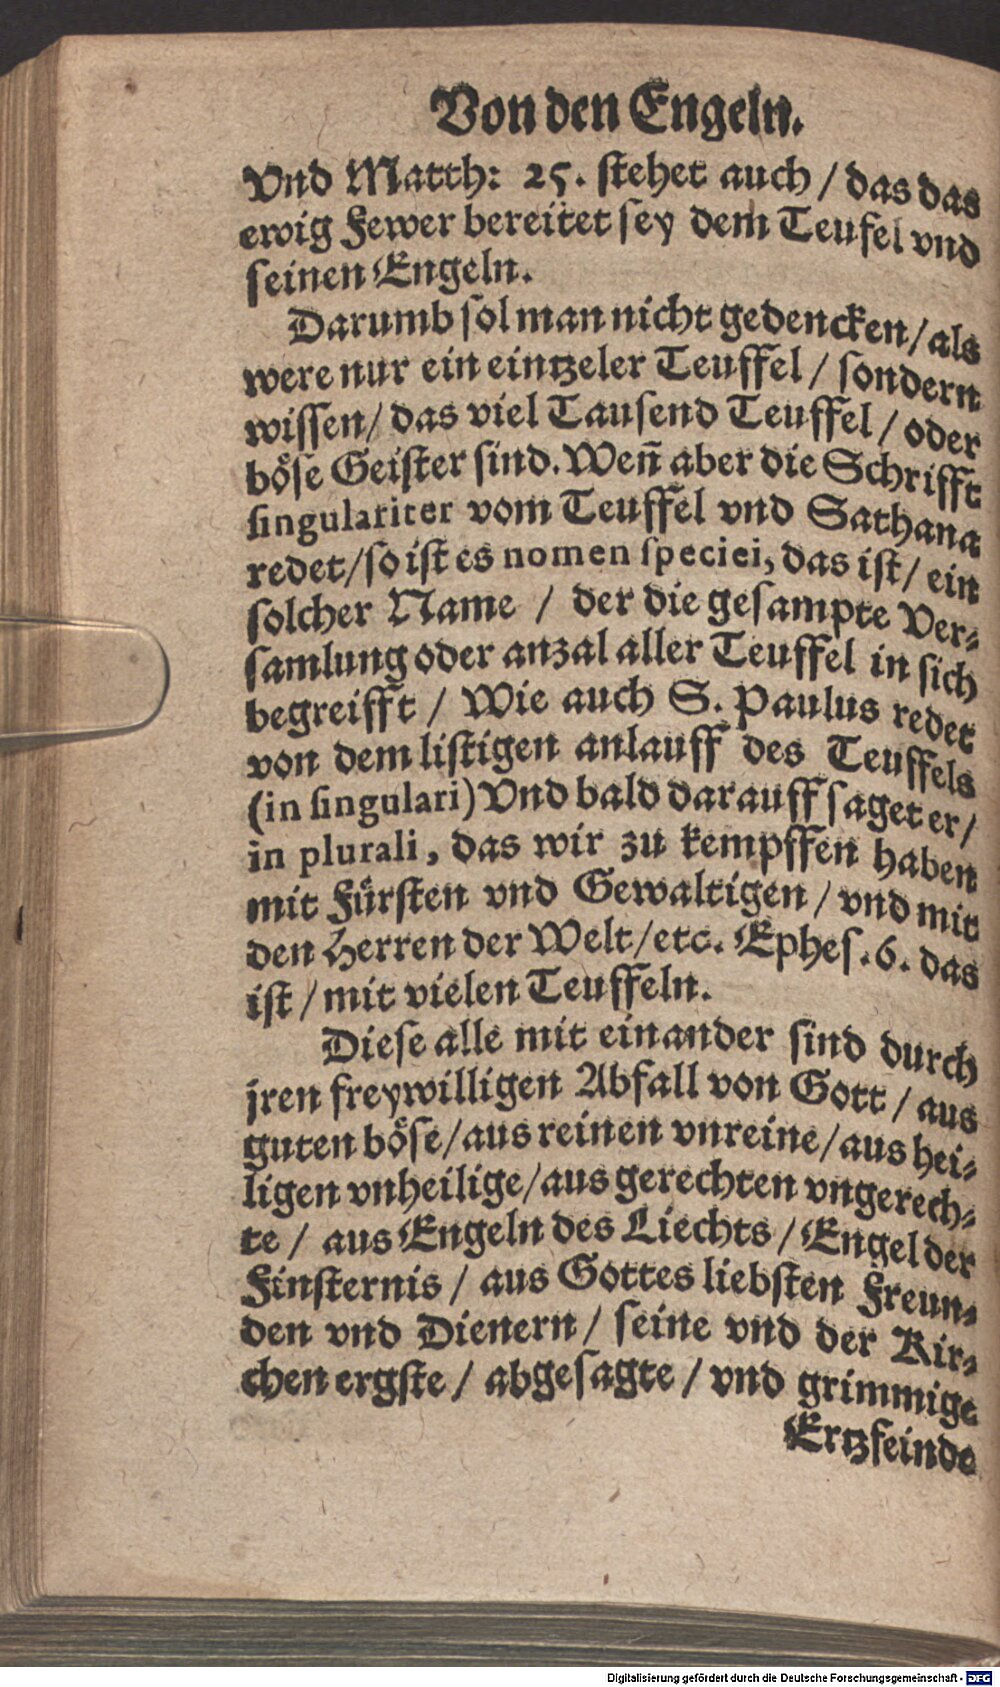 Von den Engeln.
Vnd Matth: 25. stehet auch / das das
ewig Fewer bereitet sey dem Teufel vnd
seinen Engeln.
Darumb sol man nicht gedencken / als
were nur ein eintzeler Teuffel / sondern
wissen / das viel Tausend Teuffel / oder
böse Geister sind. Weñ aber die Schrifft
singulariter vom Teuffel vnd Sathana
redet / so ist es nomen speciei, das ist / ein
solcher Name / der die gesampte Ver⸗
samlung oder anzal aller Teuffel in sich
begreifft / Wie auch S. Paulus redet
von dem listigen anlauff des Teuffels
(in singulari) Vnd bald darauff saget er /
in plurali, das wir zu kempffen haben
mit Fürsten vnd Gewaltigen / vnd mit
den Herren der Welt / etc. Ephes. 6. das
ist / mit vielen Teuffeln.
Diese alle mit einander sind durch
jren freywilligen Abfall von Gott / aus
guten böse / aus reinen vnreine / aus hei⸗
ligen vnheilige / aus gerechten vngerech⸗
te / aus Engeln des Liechts / Engel der
Finsternis / aus Gottes liebsten Freun⸗
den vnd Dienern / seine vnd der Kir⸗
chen ergste / abgesagte / vnd grimmige
Ertzfeinde
Digitalisierung gefördert durch die Deutsche Forschungsgemeinschaft - DFG